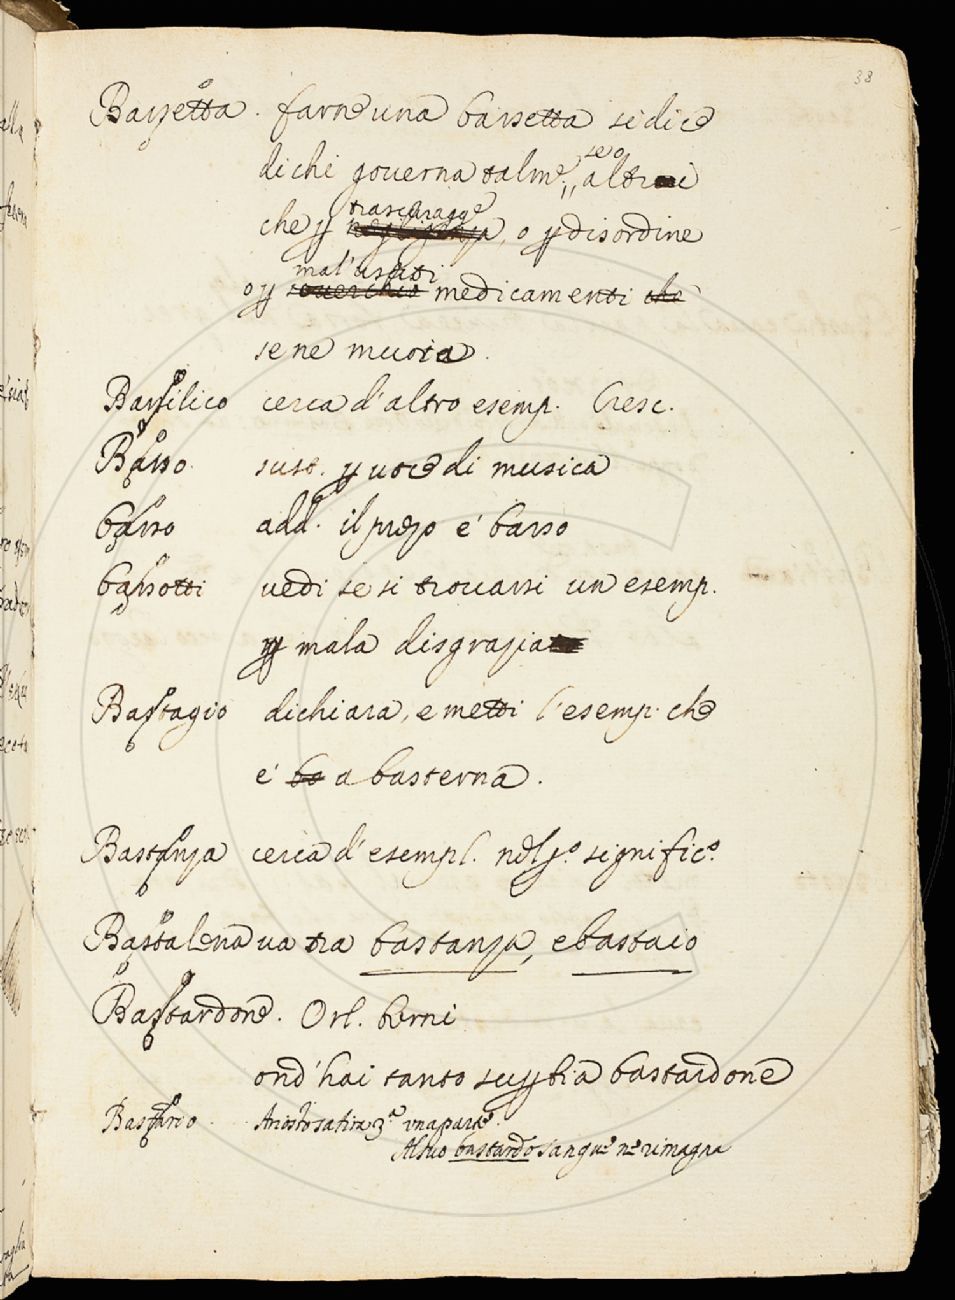 38
Bassetta. farne una bassetta si dice
di chi governa talm.e, seo altrui
che p trascuragg.e negligenza, o p disordine
o p mal'usati soverchio medicamenti che
se ne muoia.
Bassilico cerca d'altro esemp. Cresc.
Basso. sust. p voce di musica
basso add. il prezo e' basso
bassotti vedi se si trovassi un esemp.
p mala disgrazia
Bastagio dichiara, e metti l'esemp. che
e' ba a basterna.
Bastanza cerca d'esempl. nel p.o signific.o
Bastalena va tra bastanza, e bastaio
Bastardone. Orl. berni
ond' hai tanto superbia bastardone
Bastardo. Ariosto satira 3.a una parte.
Al suo bastardo sangue n.e rimagna